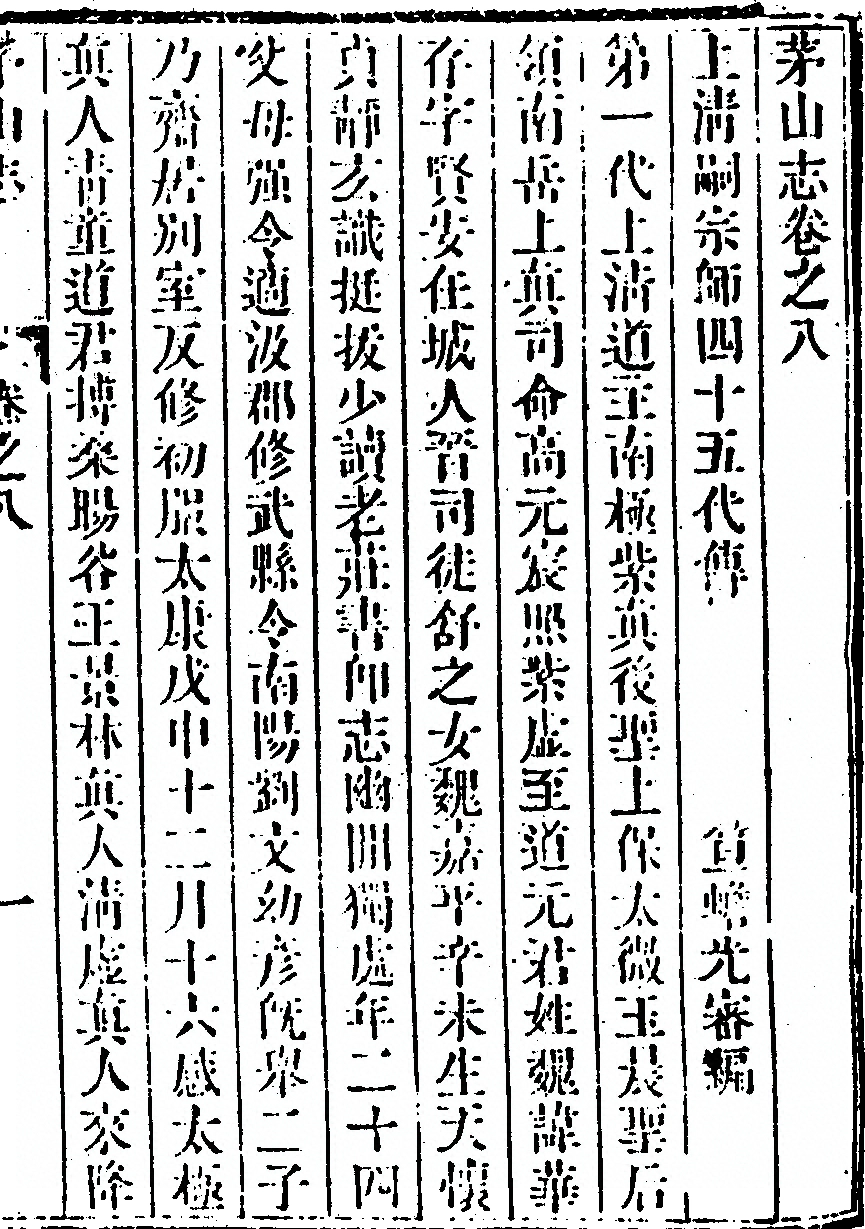 茅山志卷之八
上淸嗣宗師四十五代傳　笪蟾光審編
第一代上淸道主南極紫真後聖上保太微玉晨聖后
領南岳上真司命高元宸照紫虛至道元君姓魏諱華
存字賢安任城人晉司徒舒之女魏嘉平辛未生天懷
貞靜玄識挺拔少讀老莊書師志幽閒獨處年二十四
父母强令適汲郡修武縣令南陽劉文幼彥旣舉二子
乃齋居別室反修初服太康戊申十二月十六感太極
真人靑童道君搏桑暘谷王景林真人淸虛真人來降
茅山志　卷之八　一